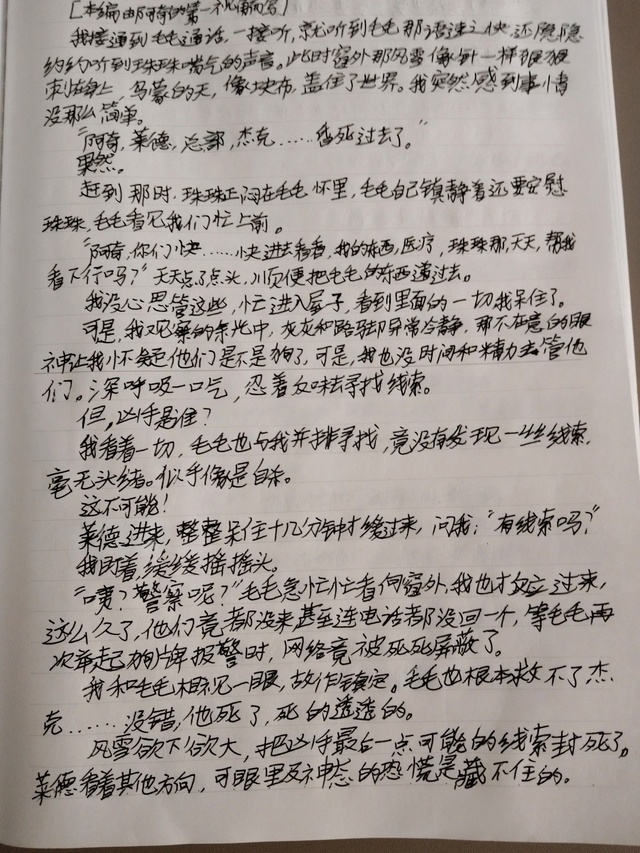 [本编由阿奇的第一视角写]
我接通到毛毛通话,一接听,就听到毛毛那语速之快还隐隐
约约听到珠珠喘气的声音。此时窗外那风雪像针一样狠狠
刺在身上,乌蒙的天,像块布,盖住了世界。我突然感到事情
没那么简单。
“阿奇,莱德,总部,杰克……昏死过去了。”
果然。
赶到那时,珠珠正闷在毛毛怀里,毛毛自己镇静着还要安慰
珠珠,毛毛看见我们忙上前。
“阿奇,你们快……快进去看看,我的东西,医疗,珠珠那,天天,帮我
看下行吗?”天天点了点头,顺便把毛毛的东西递过去。
我没心思管这些,忙进入屋子,看到里面的一切我呆住了。
可是,我观察的余光中,灰灰和路马却异常冷静,那不在意的眼
神让我怀疑他们是不是狗了,可是,我也没时间和精力去管他
们。深呼吸一口气,忍着气味去寻找线索。
但,凶手是谁?
我看着一切,毛毛也与我并排寻找,竟没有发现一丝线索,
毫无头绪。似乎像是自杀。
这不可能!
莱德进来,整整呆住十几分钟才缓过来,问我:“有线索吗?”
我盯着,缓缓摇摇头。
“咦?警察呢?”毛毛急忙忙看向窗外,我也才反应过来,
这么久了,他们竟都没来甚至连电话都没回一个,等毛毛再
次举起狗牌报警时,网络竟被死死屏蔽了。
我和毛毛相视一眼,故作镇定。毛毛也根本救不了杰
克……没错,他死了,死的透透的。
风雪欲下欲大,把凶手最后一点可能的线索封死了。
莱德看着其他方向,可眼里及神态的恐慌是藏不住的。